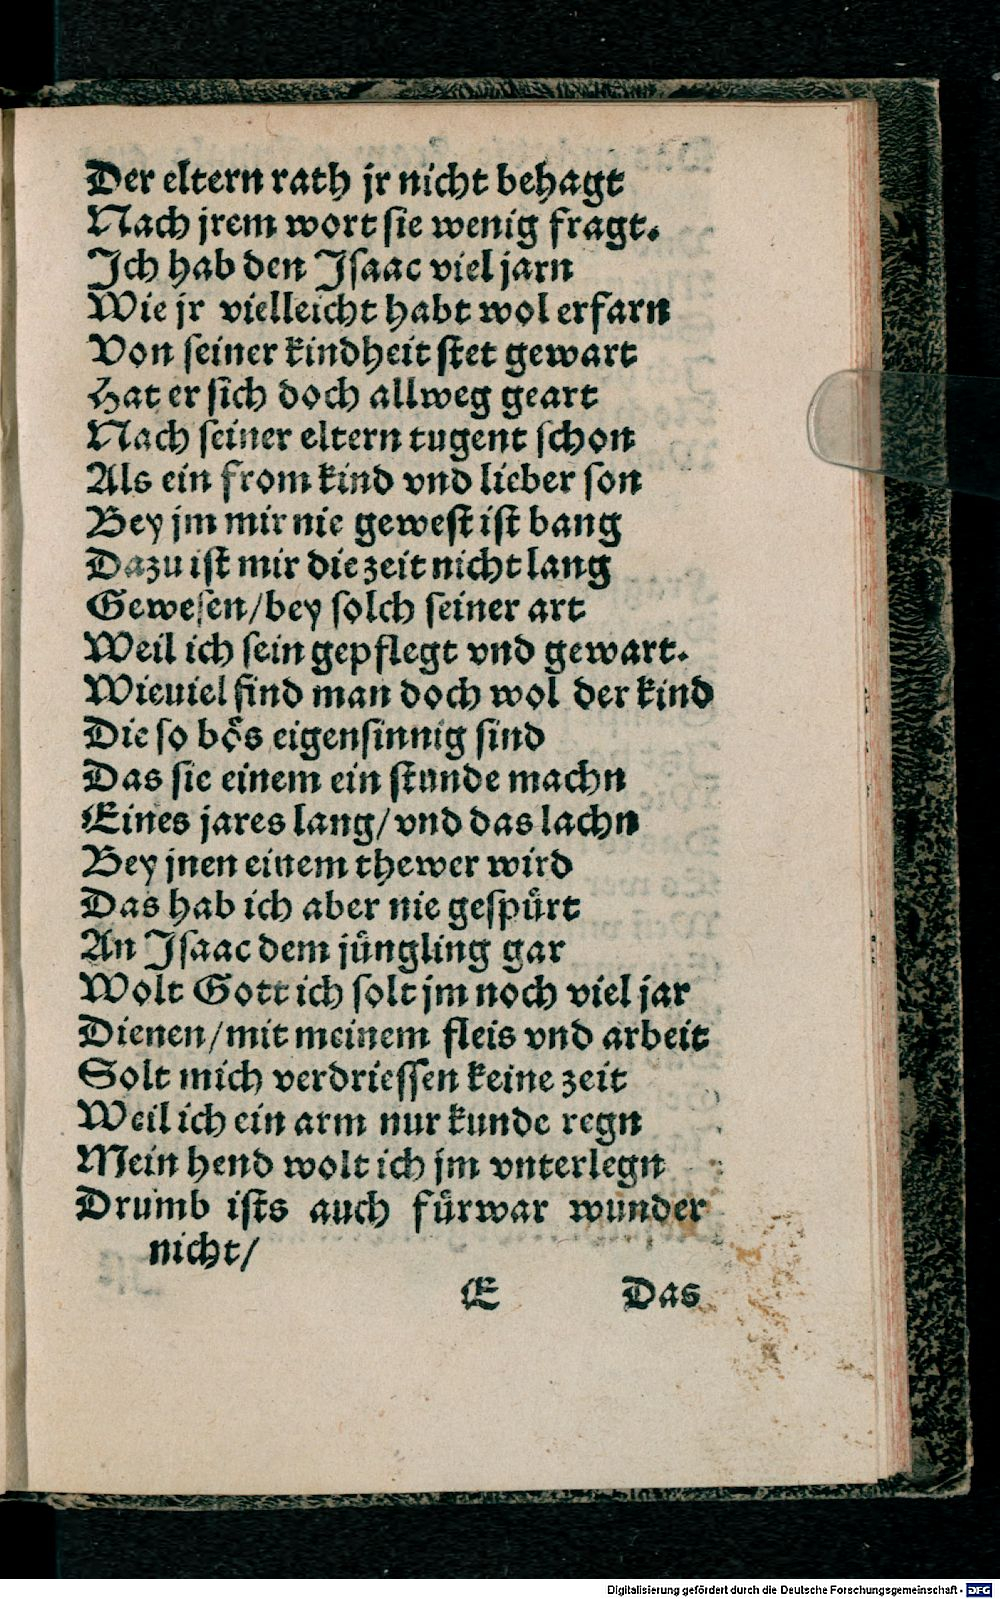 Der eltern rath jr nicht behagt
Nach jrem wort sie wenig fragt.
Ich hab den Isaac viel jarn
Wie jr vielleicht habt wol erfarn
Von seiner kindheit stet gewart
Hat er sich doch allweg geart
Nach seiner eltern tugent schon
Als ein from kind vnd lieber son
Bey jm mir nie gewest ist bang
Dazu ist mir die zeit nicht lang
Gewesen/bey solch seiner art
Weil ich sein gepflegt vnd gewart.
Wieuiel find man doch wol der kind
Die so boͤs eigensinnig sind
Das sie einem ein stunde machn
Eines jares lang/vnd das lachn
Bey jnen einem thewer wird
Das hab ich aber nie gespuͤrt
An Isaac dem juͤngling gar
Wolt Gott ich solt jm noch viel jar
Dienen/mit meinem fleis vnd arbeit
Solt mich verdriessen keine zeit
Weil ich ein arm nur kunde regn
Mein hend wolt ich jm vnterlegn
Drumb ists auch fuͤrwar wunder
nicht/
E Das
Digitalisierung gefördert durch die Deutsche Forschungsgemeinschaft - DFG